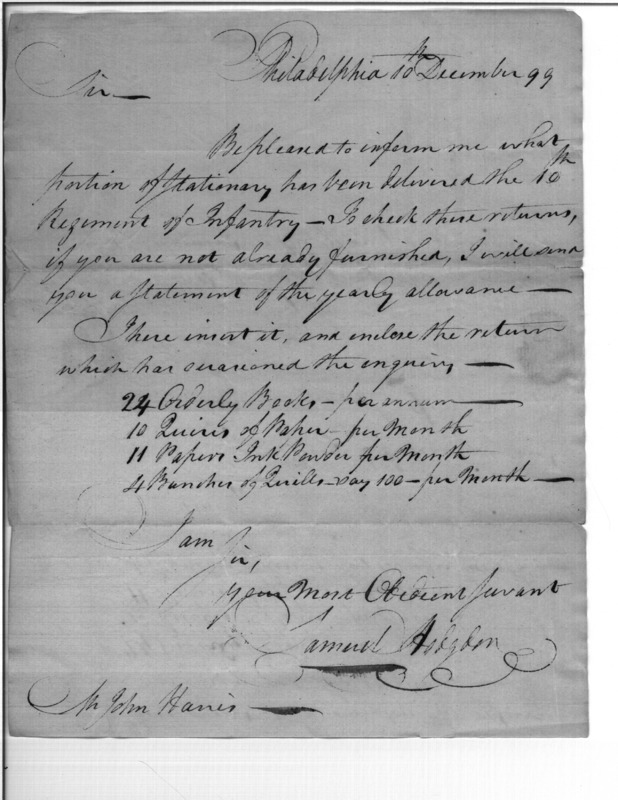 Philadelphia 10th December 99
Sir
Be pleased to inform me what
portion of Stationary has been delivered the 10th
Regiment of Infantry – To check these returns,
if you are not already furnished, I will send
you a Statement of the yearly allowance —
I here insert it, and enclose the return
which has occasioned the enquiry —
24 Orderly Books – per annum —
10 Quires of Paper – per Month
11 Papers Ink Powder per Month
4 Bunches of Quills – say 100 – per Month —
I am
Sir,
your Most Obedient Servant
Samuel Hodgdon
Mr John Harris —